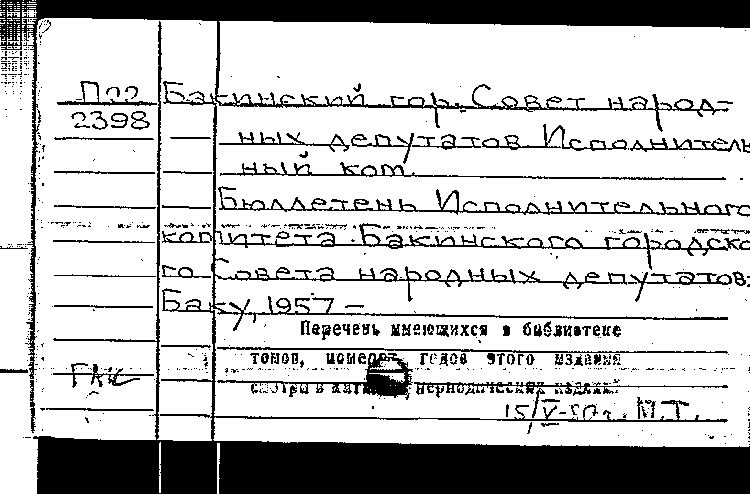 П22 Бакинский гор. Совет народ-
2398 ных депутатов Исполнитель
ный ком.
Бюллетень Исполнительного
комитета Бакинского городско
го Совета народных депутатов.
Баку, 1957 –
Перечень имеющихся в библиотеке
томов, номеров, годов этого издания
смотри в периодических изданий
15/V-80г. М.Т.